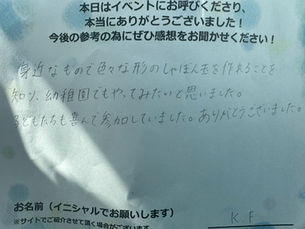 本日はイベントにお呼びくださり、
本当にありがとうございました！
今後の参考の為にぜひ感想をお聞かせください！
身近なもので色々な形のしゃぼん玉を作れることを
知り、幼稚園でもやってみたいと思いました。
子どもたちも喜んで参加していました。ありがとうございました。
お名前（イニシャルでお願いします）
※サイトでご紹介させて頂く場合がございます
K.F